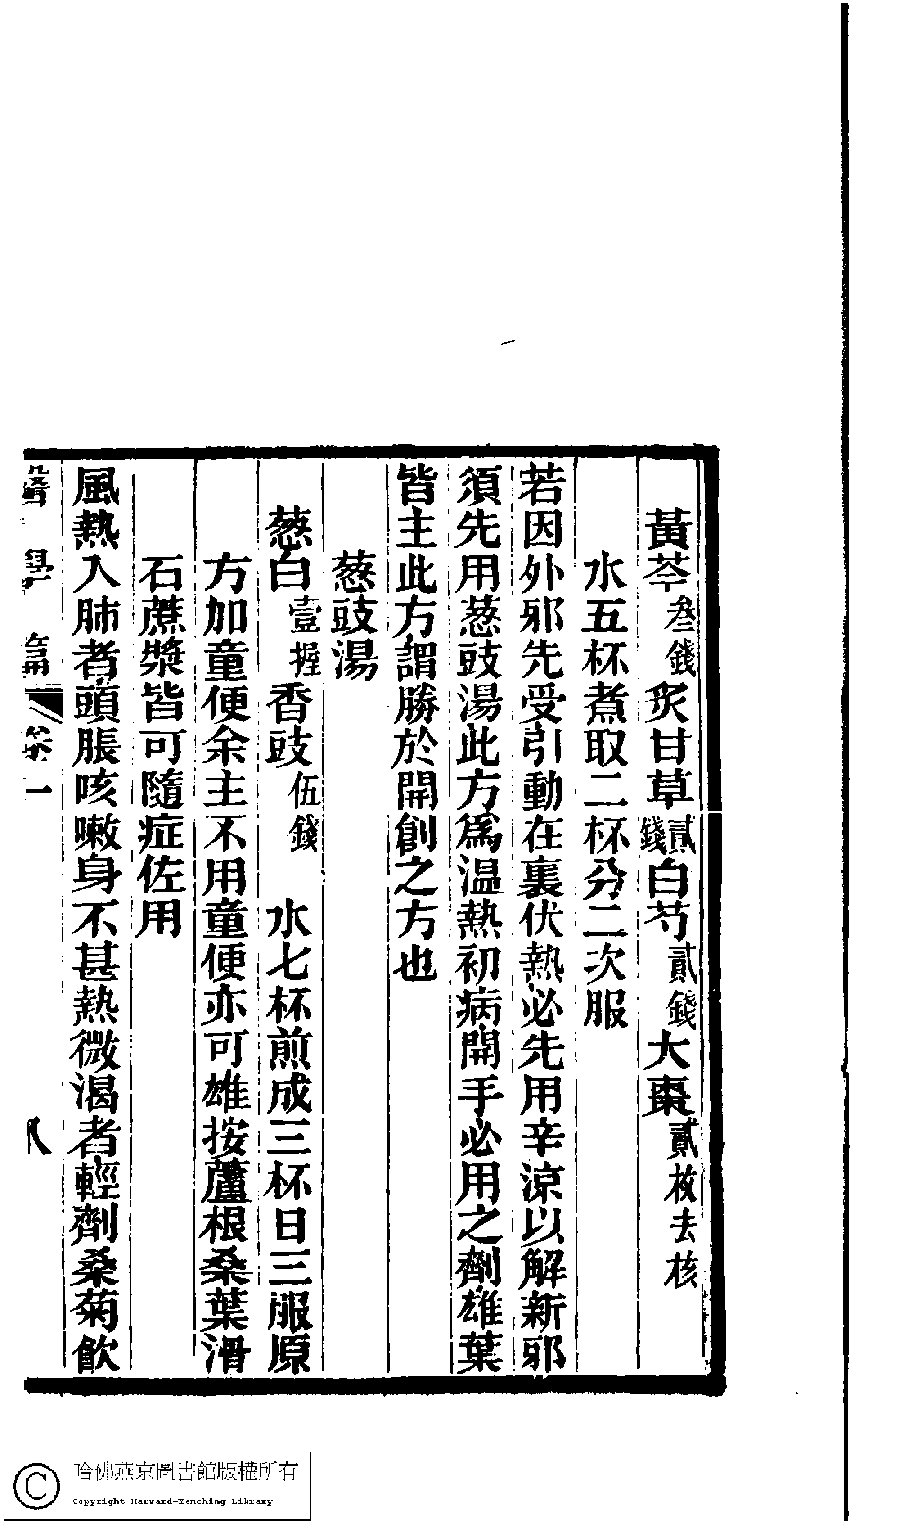 黃芩叁錢炙甘草貳錢白芍貳錢大棗貳枚去核
水五杯煮取二杯分二次服
若因外邪先受引動在裏伏熱必先用辛涼以解新邪
須先用葱豉湯此方爲温熱初病開手必用之劑雄葉
皆主此方謂勝於開創之方也
葱豉湯
葱白壹握香豉伍錢 水七杯煎成三杯日三服原
方加童便余主不用童便亦可雄按蘆根桑葉滑
石蔗漿皆可隨症佐用
風熱入肺者頭脹咳嗽身不甚熱微渴者輕劑桑菊飮
學篇 卷一 八
哈佛燕京圖書館版權所有
Copyright Harvard-Yenching Library